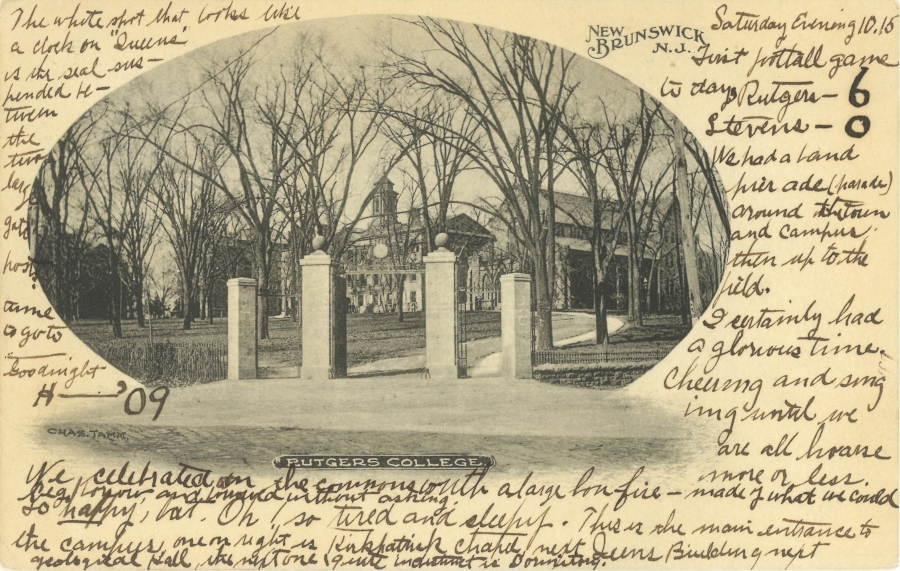 The white spot that looks like
a clock on "Queens"
is the seal sus-
pended be-
tween
the
two
large
gate
posts.
time
to go to
Goodnight
H—— '09
NEW
BRUNSWICK
N.J.
Saturday Evening 10.15
First football game
to day, Rutgers — 6
Stevens — 0
We had a band
pier ade (parade)
around the town
and campus.
then up to the
field.
I certainly had
a glorious time.
Cheering and sing
ing until we
are all hoarse
more or less.
CHAS. TAMM.
RUTGERS COLLEGE.
We celebrated on the commons with a large bonfire — made of what we could
beg borrow and without asking
So happy, but. Oh, so tired and sleepy. This is the main entrance to
the campus, one on right is Kirkpatrick Chapel, next Queens Building next
geological Hall, the next one quite indistinct is Dormitory.